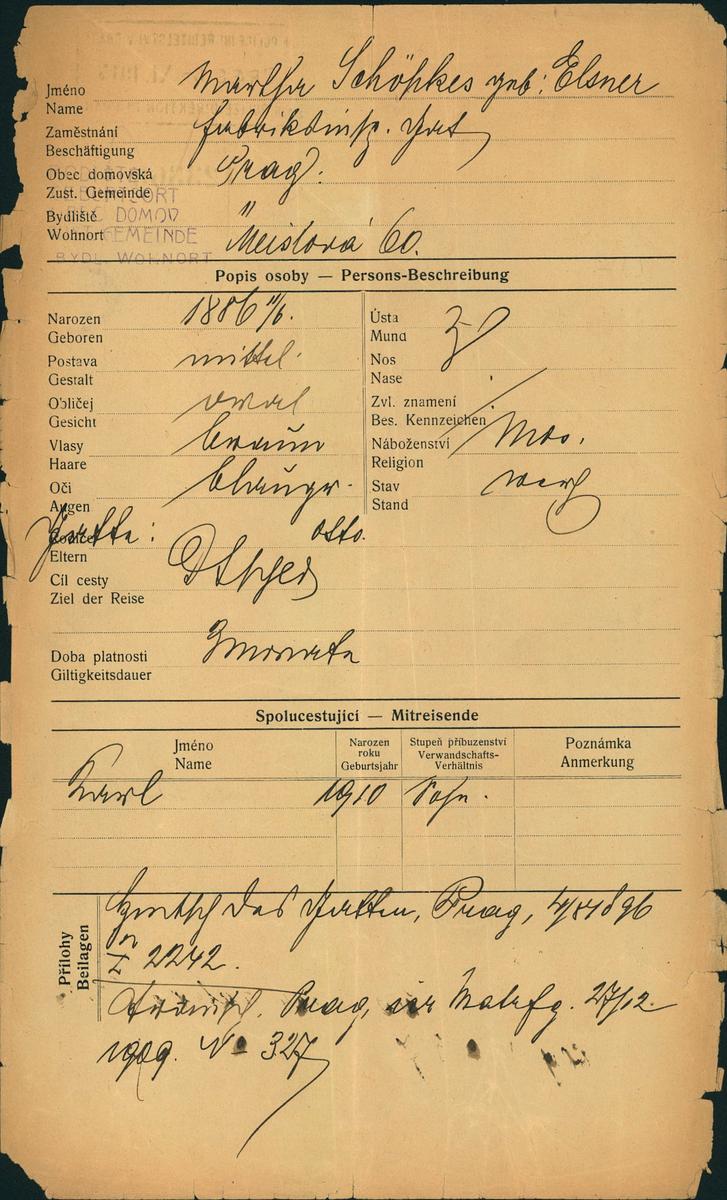 Jméno
Name
Martha Schöpkes geb: Elsner
Zaměstnání
Beschäftigung
Obec domovská
Zust. Gemeinde
Prag.
Bydliště
Wohnort
"
Meislova 60.
DOMOV
GEMEINDE
BYDL WOHNORT
Popis osoby — Persons-Beschreibung
Narozen
Geboren
1886
Postava
Gestalt
mittel.
Obličej
Gesicht
oval
Vlasy
Haare
braun
Oči
Augen
blaugr.
Ústa
Mund
Nos
Nase
Zvl. znamení
Bes. Kennzeichen
Náboženství
Religion
Mos.
Stav
Stand
verh
Gatte: Otto.
Eltern
Cíl cesty
Ziel der Reise
Doba platnosti
Giltigkeitsdauer
Monate
Spolucestující — Mitreisende
Jméno
Name
Narozen roku
Geburtsjahr
Stupeň příbuzenství
Verwandschafts-Verhältnis
Poznámka
Anmerkung
Karl 1910 Sohn.
Přílohy
Beilagen
des Gatten, Prag,
2242.
Prag, 27/12.
1909. No 327